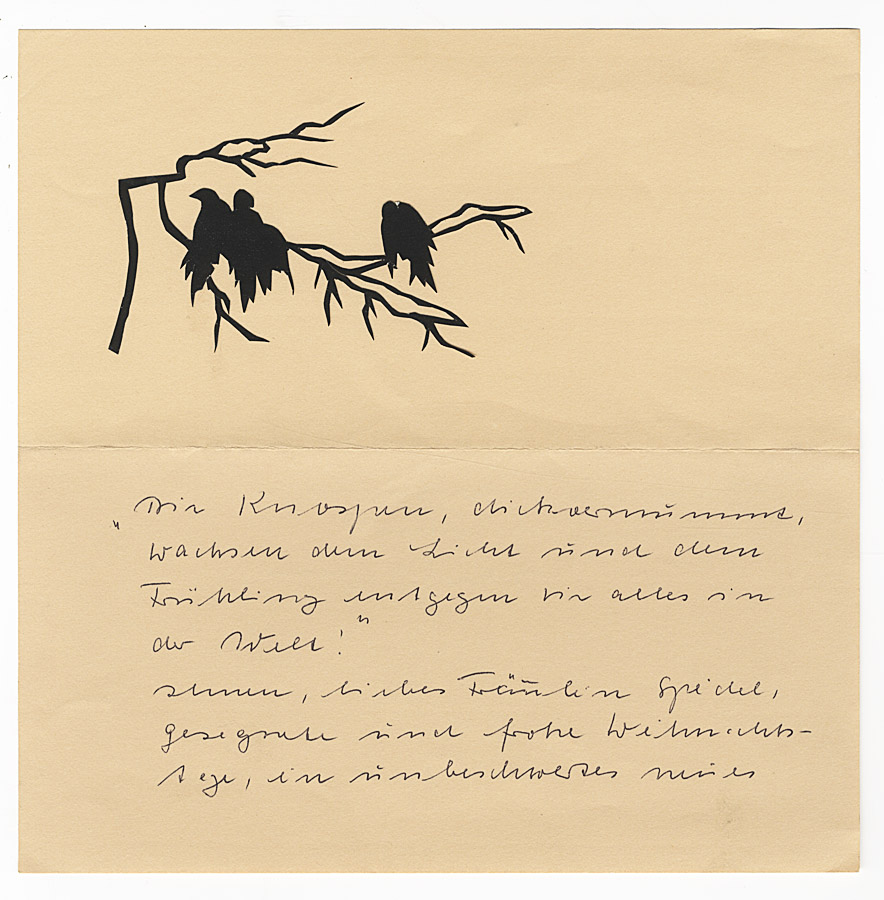 „Die Knospen, dickvermummt,
wachsen dem Licht und dem
Frühling entgegen wie alles in
der Welt!“
Ihnen, liebes Fräulein Speidel,
gesegnete und frohe Weihnachts-
tage, ein unbeschwertes neues